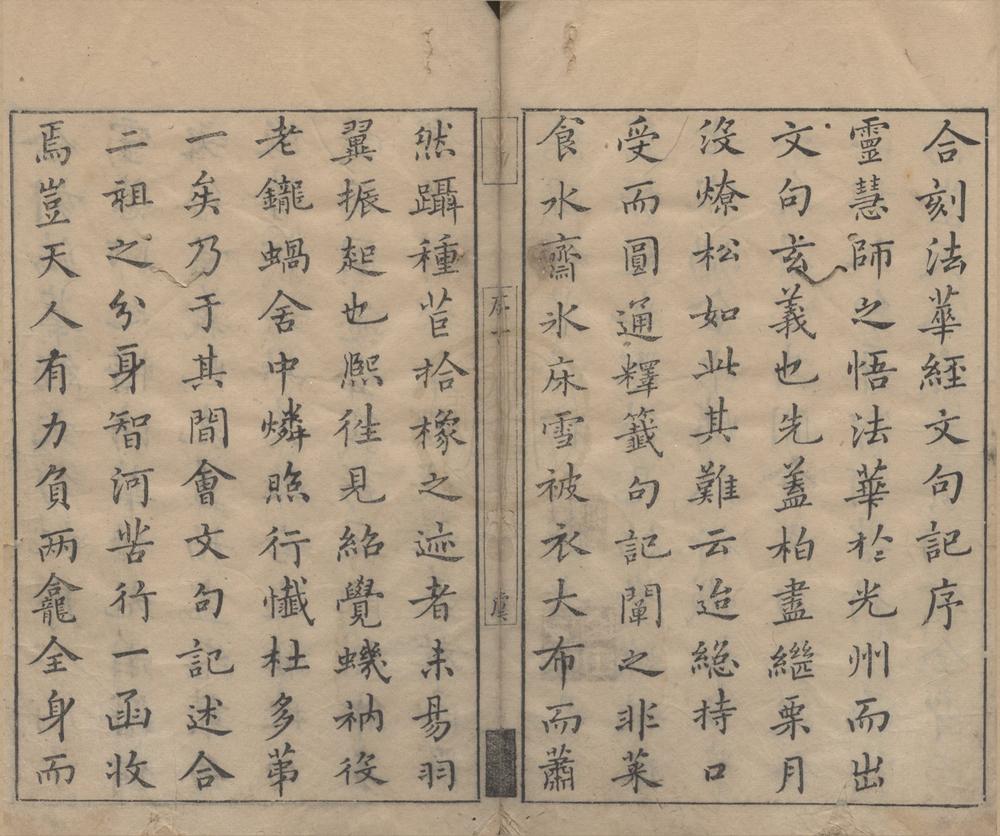 合刻法華經文句記序
靈慧師之悟法華於光州而出
文句玄義也先蓋柏盡繼栗月
沒燎松如此其難云迨緫持口
受而圓通釋籤句記闡之非菜
食水齋氷床雪被衣大布而蕭
序一
虞
然躡種苣拾橡之迹者未易羽
翼振起也熈徃見紹覺蟣衲伇
老鑨蝸舍中燐照行懺杜多苐
一矣乃于其間會文句記述合
二祖之分身智河苦行一函收
焉豈天人有力負两龕全身而